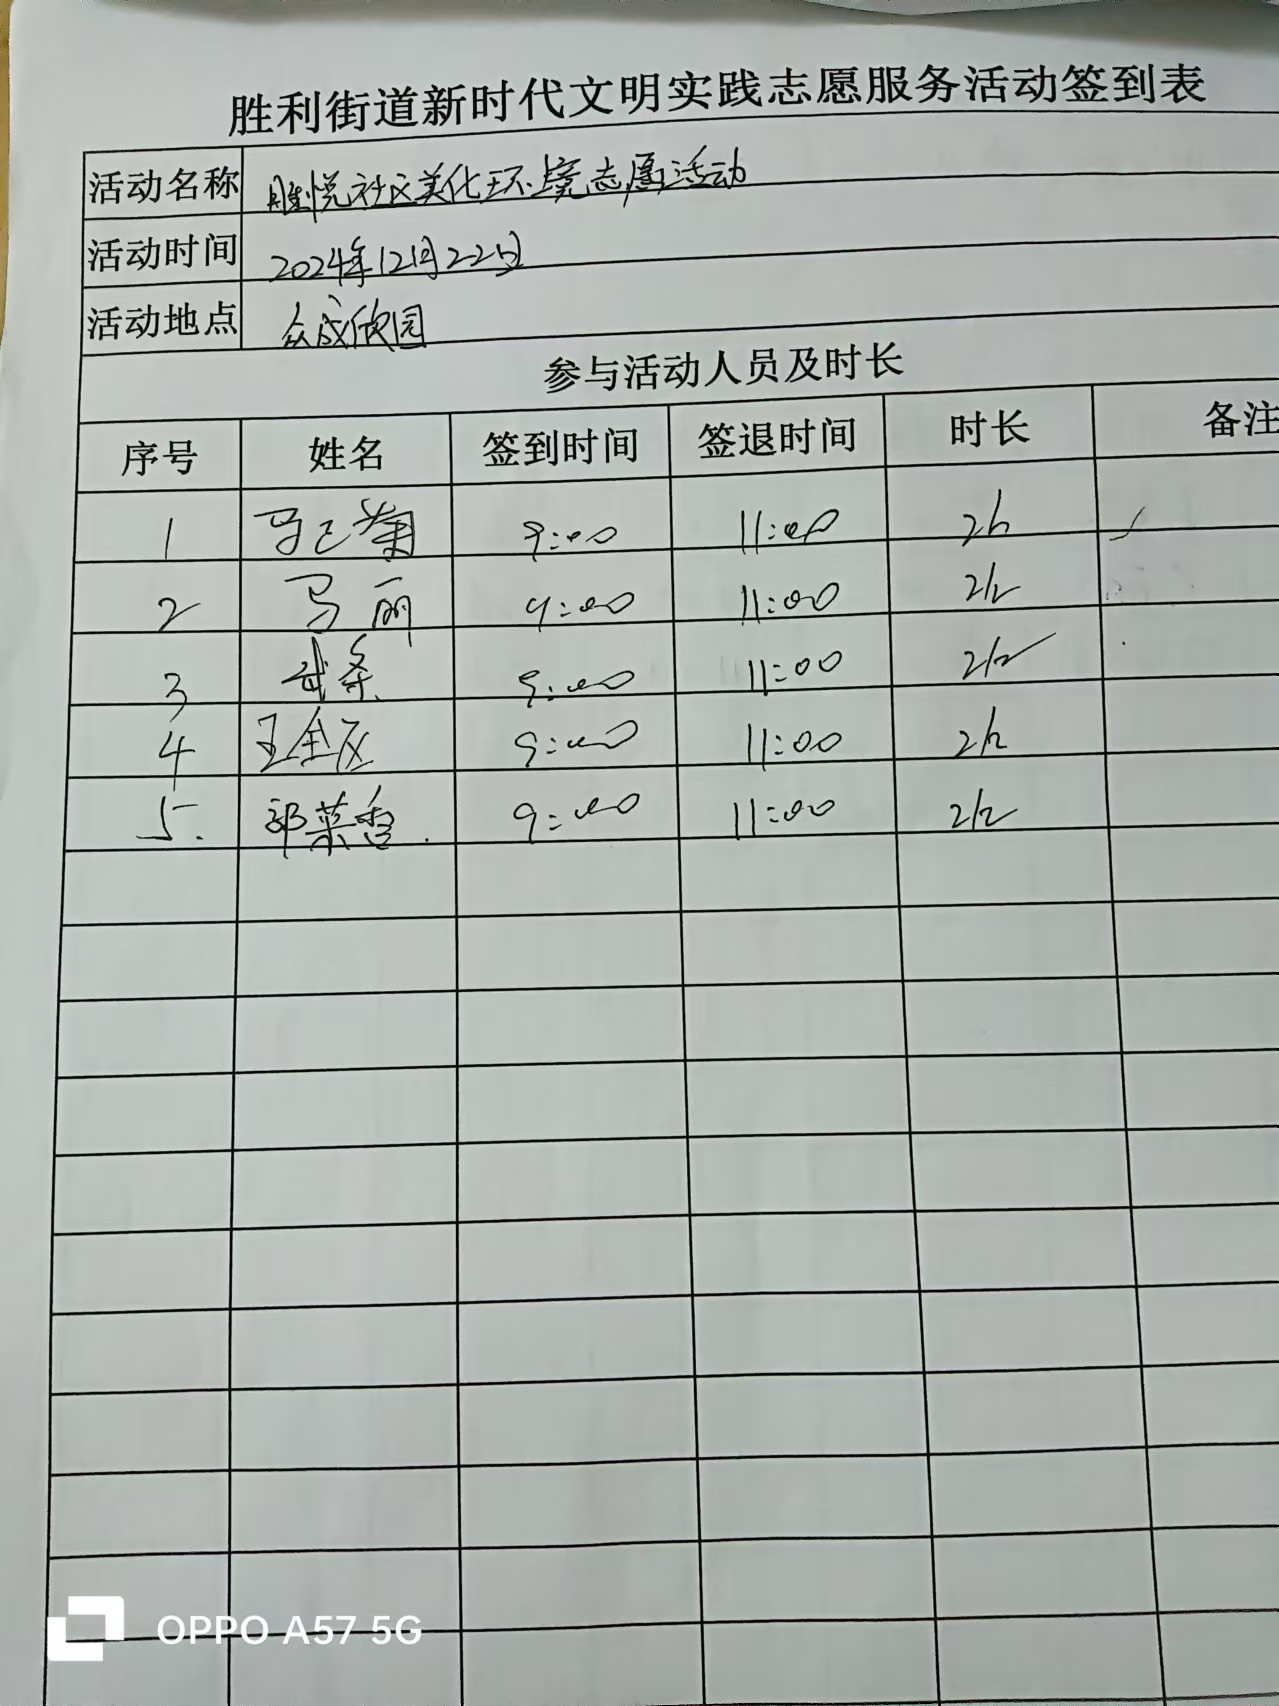 胜利街道新时代文明实践志愿服务活动签到表
活动名称 胜悦社区美化环境志愿活动
活动时间 2024年12月22日
活动地点 众成欣园
参与活动人员及时长
序号 姓名 签到时间 签退时间 时长 备注
1 马已菊 9:00 11:00 2h
2 马丽 9:00 11:00 2h
3 武条 9:00 11:00 2h
4 王全 9:00 11:00 2h
5. 郭菜香. 9:00 11:00 2h
OPPO A57 5G